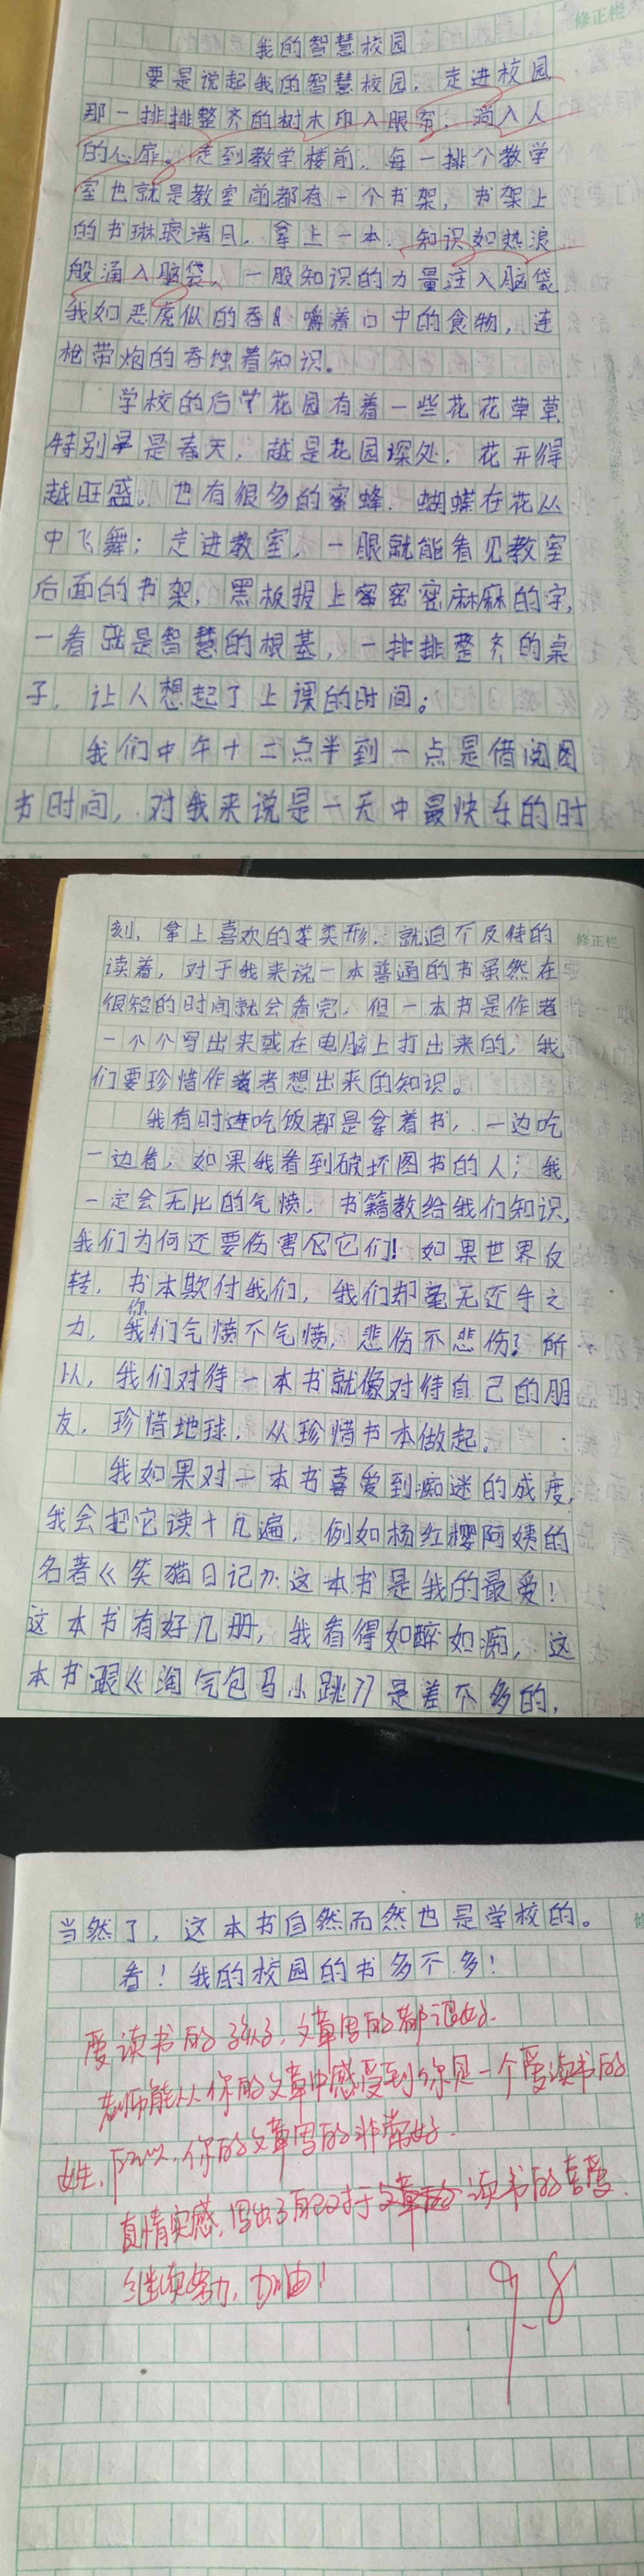 修正栏
我的智慧校园
要是说起我的智慧校园，走进校园
那一排排整齐的树木印入眼帘，淌入人
的心扉。走到教学楼前，每一排个教学
室也就是教室前都有一个书架，书架上
的书琳琅满目，拿上一本，知识如热浪
般涌入脑袋、一股知识的力量注入脑袋
我如恶虎似的吞 嚼着口中的食物，连
枪带炮的吞蚀着知识。
学校的后 花园有着一些花花草草
特别 是春天，越是花园深处，花开得
越旺盛。也有很多的蜜蜂，蝴蝶在花丛
中飞舞；走进教室，一眼就能看见教室
后面的书架，黑板报上密密麻麻的字，
一看就是智慧的根基，一排排整齐的桌
子，让人想起了上课的时间。
我们中午十二点半到一点是借阅图
书时间，对我来说是一天中最快乐的时
修正栏
刻，拿上喜欢的 类形，就迫不及待的
读着，对于我来说一本普通的书虽然在
很短的时间就会看完，但一本书是作者
一个个写出来或在电脑上打出来的，我
们要珍惜作者想出来的知识。
我有时 吃饭都是拿着书，一边吃
一边看，如果我看到破坏图书的人；我
一定会无比的气愤，书籍教给我们知识，
我们为何还要伤害 它们！如果世界反
转，书本欺付我们，我们却毫无还手之
力，你们气愤不气愤，悲伤不悲伤？所
以，我们对待一本书就像对待自己的朋
友，珍惜地球，从珍惜书本做起。
我如果对一本书喜爱到痴迷的成度，
我会把它读十几遍，例如杨红樱阿姨的
名著《笑猫日记》：这本书是我的最爱！
这本书有好几册，我看得如醉如痴，这
本书跟《淘气包马小跳》是差不多的，
当然了，这本书自然而然也是学校的。
看！我的校园的书多不多！
爱读书的孩子，文章写的都通好．
老师能从你的文章中感受到你是一个爱读书的
娃，所以，你的文章写的非常好．
真情实感，写出了自己对于 读书的喜爱．
继续努力，加油！
9.8